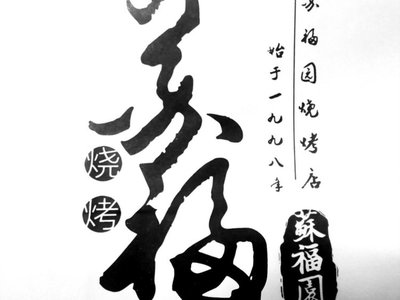 苏福园烧烤店
始于一九九八年
苏福
烧烤
蘇福園